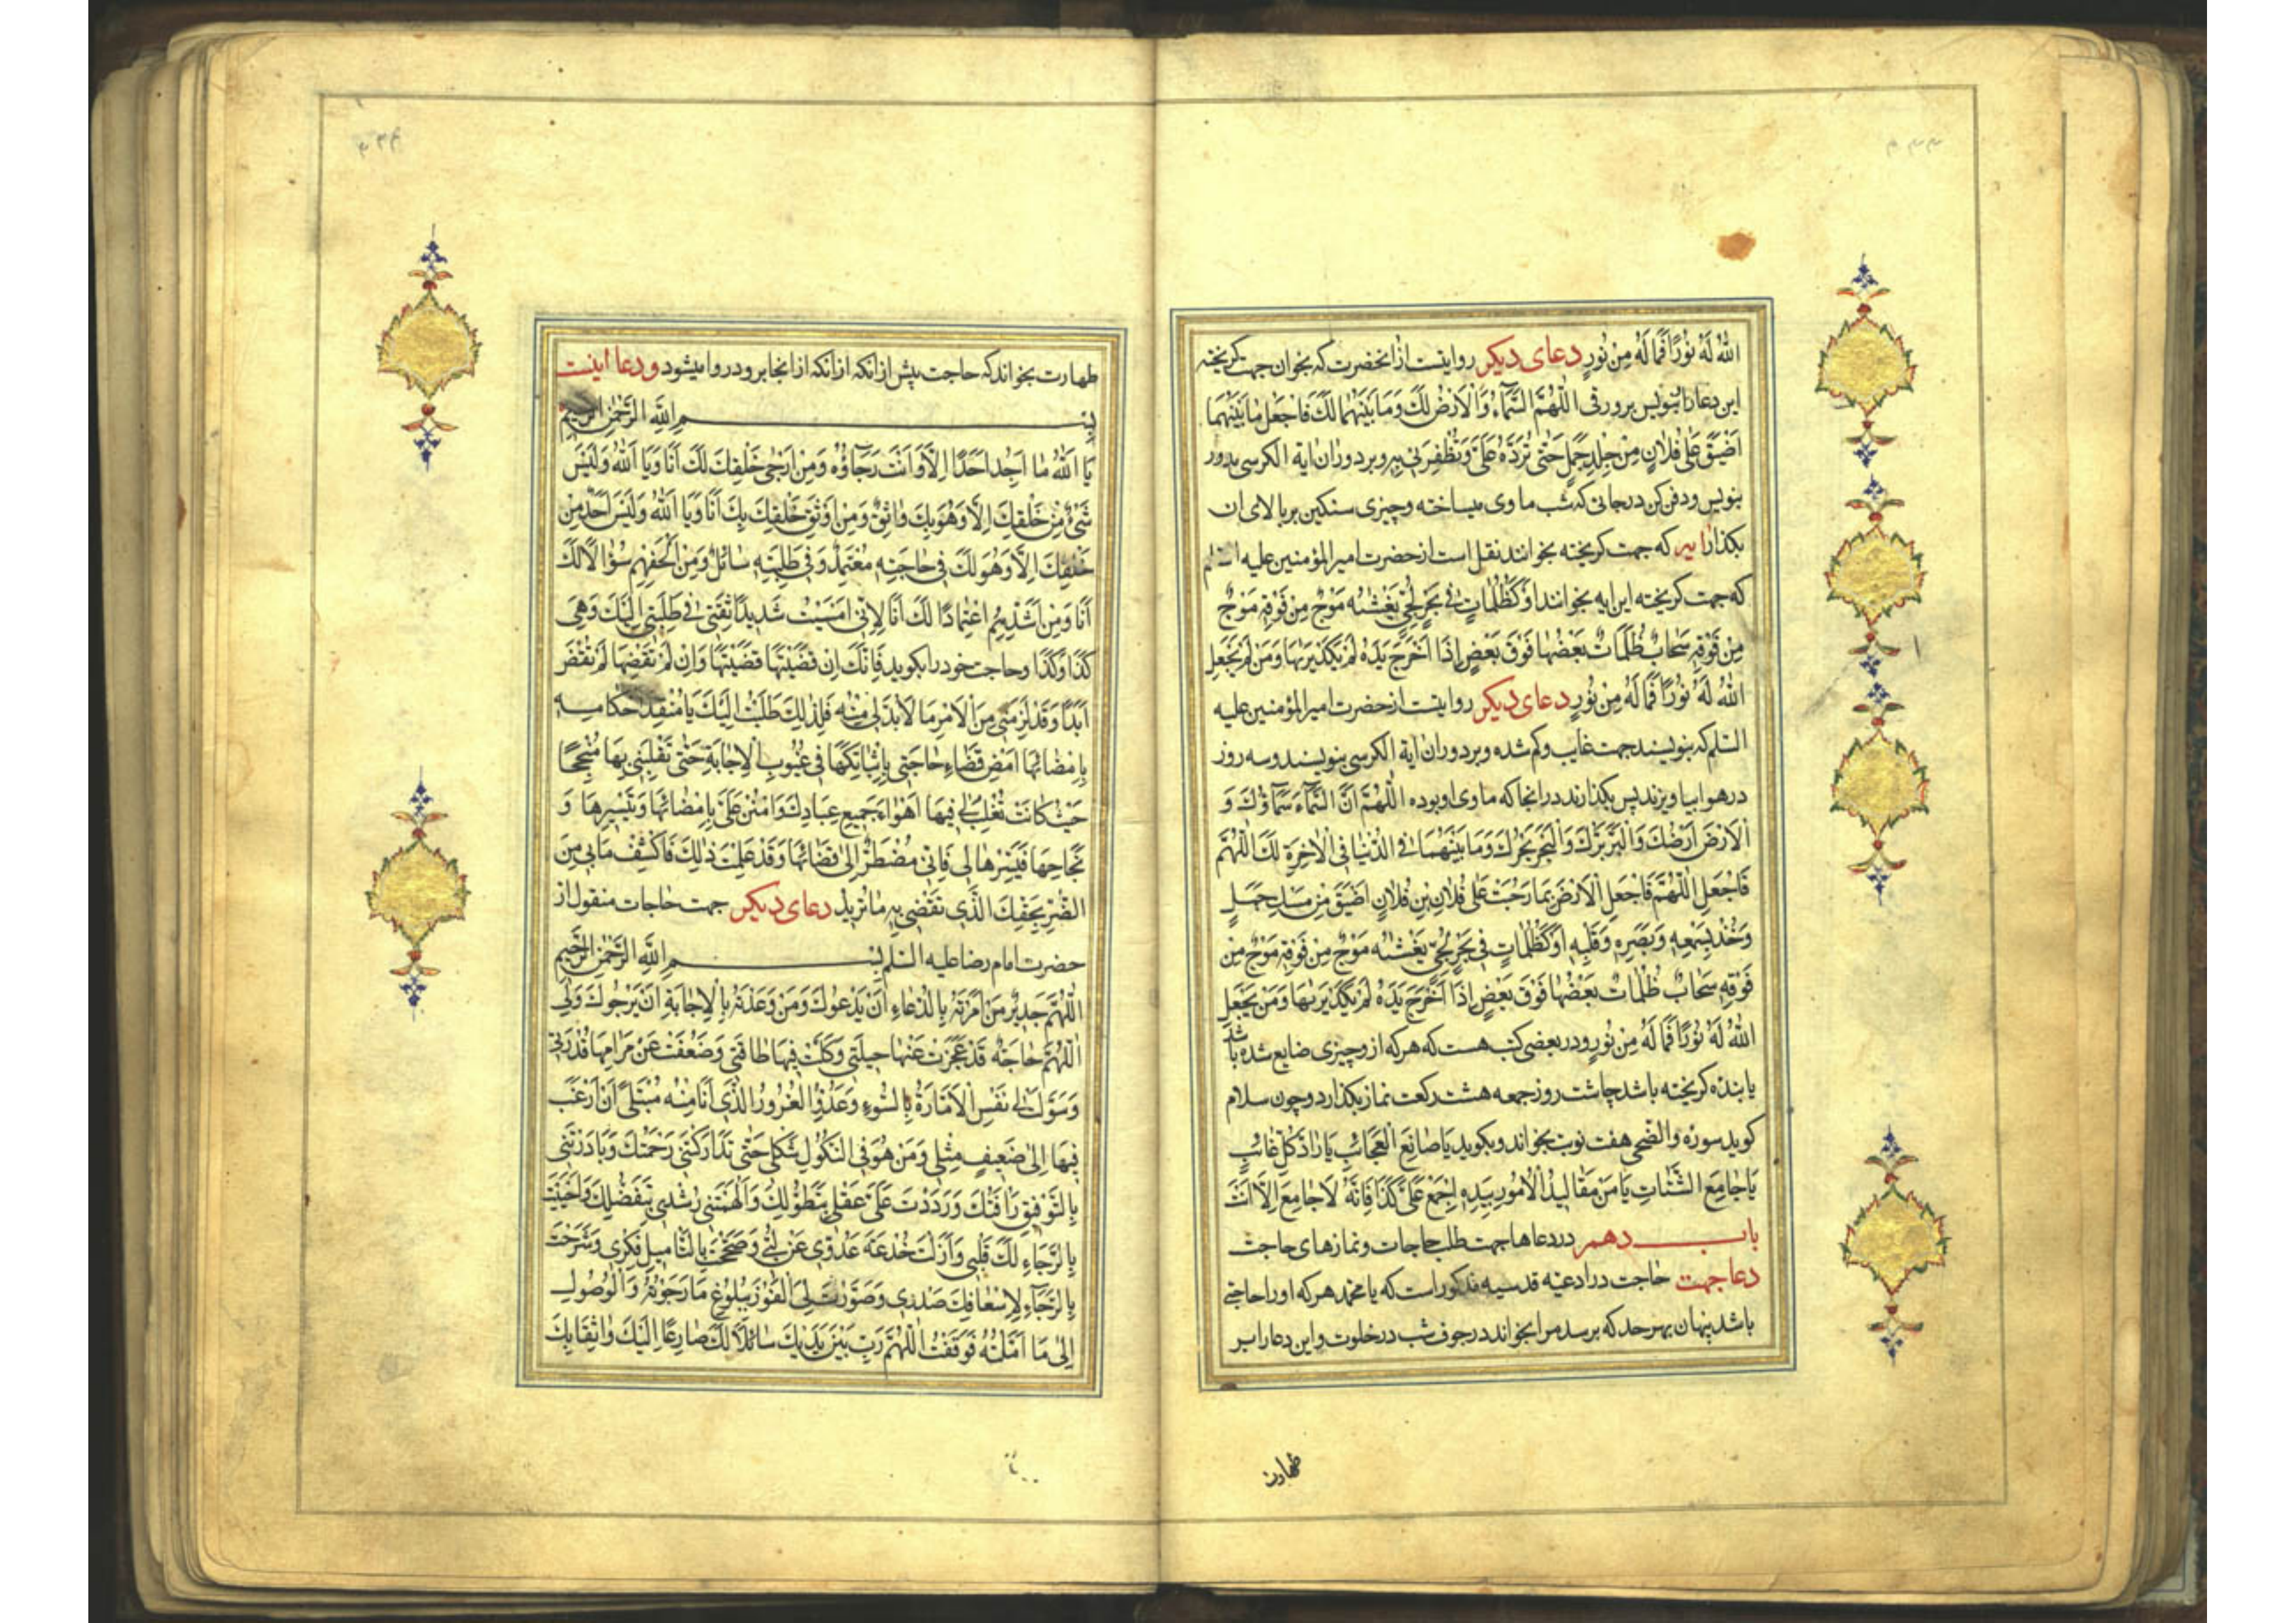 ٣٣٣
الله لَهُ نُورًا فَمَا لَهُ مِنْ نُورٍ دعای دیکر روایتست ازانحضرت که بخوان جهت کریخته
این دعا را بنویس برورقی اَللّٰهُمَّ السَّمَآءُ وَالْاَرْضُ لَكَ وَمَا بَيْنَهُمَا لَكَ فَاجْعَلْ مَا بَيْنَهُمَا
اَضْيَقَ عَلٰى فُلَانٍ مِنْ جِلْدِ جَمَلٍ حَتّٰى تَرُدَّهُ عَلَيَّ وَتُظْفِرَنِي بِهِ وبر دوران ایة الکرسی مدور
بنویس ودفن کن درجائی که شب ماوی میساخته وچیزی سنکین بر بالای ان
بکذار ایه که جهت کریخته بخوانند نقل است ازحضرت امیرالمؤمنین علیه السلم
که جهت کریخته این ایه بخوانند اَوْ كَظُلُمَاتٍ فِي بَحْرٍ لُجِّيٍّ يَغْشٰيهُ مَوْجٌ مِنْ فَوْقِهِ مَوْجٌ
مِنْ فَوْقِهِ سَحَابٌ ظُلُمَاتٌ بَعْضُهَا فَوْقَ بَعْضٍ اِذَا اَخْرَجَ يَدَهُ لَمْ يَكَدْ يَرٰيهَا وَمَنْ لَمْ يَجْعَلِ
اللّٰهُ لَهُ نُورًا فَمَا لَهُ مِنْ نُورٍ دعای دیکر روایتست ازحضرت امیرالمؤمنین علیه
السلم که بنویسند جهت غایب وکم شده وبر دوران ایة الکرسی بنویسند وسه روز
درهوا بیاویزند پس بکذارند درانجا که ماوی او بوده اَللّٰهُمَّ اَنَّ السَّمَآءَ سَمَآؤُكَ وَ
الْاَرْضَ اَرْضُكَ وَالْبَرَّ بَرُّكَ وَالْبَحْرَ بَحْرُكَ وَمَا بَيْنَهُمَا فِي الدُّنْيَا فِي الْاٰخِرَةِ لَكَ اَللّٰهُمَّ
فَاجْعَلِ اللّٰهُمَّ فَاجْعَلِ الْاَرْضَ بِمَا رَحُبَتْ عَلٰى فُلَانِ بْنِ فُلَانٍ اَضْيَقَ مِنْ جَمَلٍ
وَخُذْ بِسَمْعِهِ وَبَصَرِهِ وَقَلْبِهِ اَوْ كَظُلُمَاتٍ فِي بَحْرٍ لُجِّيٍّ يَغْشٰيهُ مَوْجٌ مِنْ فَوْقِهِ مَوْجٌ مِنْ
فَوْقِهِ سَحَابٌ ظُلُمَاتٌ بَعْضُهَا فَوْقَ بَعْضٍ اِذَا اَخْرَجَ يَدَهُ لَمْ يَكَدْ يَرٰيهَا وَمَنْ يَجْعَلِ
اللّٰهُ لَهُ نُورًا فَمَا لَهُ مِنْ نُورٍ ودر بعضی کتب هست که هرکه ازو چیزی ضایع شده باشد
یا بنده کریخته باشد چاشت روز جمعه هشت رکعت نماز بکذارد وچون سلام
کوید سوره والضحی هفت نوبت بخواند وبکوید يَا صَانِعَ الْعَجَائِبِ يَا رَادَّ كُلِّ غَائِبٍ
يَا جَامِعَ الشَّتَاتِ يَا مَنْ مَقَالِيدُ الْاُمُورِ بِيَدِهِ اِجْمَعْ عَلَيَّ كَذَا فَاِنَّهُ لَا جَامِعَ اِلَّا اَنْتَ
باب دهم در دعاها جهت طلب حاجات ونمازهای حاجت
دعا جهت حاجت در ادعیه قدسیه مذکور است که یا محمد هرکه اورا حاجتی
باشد پنهان بهر حد که برسد مرا بخواند در جوف شب در خلوت واین دعا را بر
طهارت
٣٣٤
طهارت بخواند که حاجت پیش ازانکه ازانکه ازانجا برود روا میشود ودعا اینست
بسم الله الرحمن الرحیم
يَا اَللّٰهُ مَا اَجِدُ اَحَدًا اِلَّا وَاَنْتَ رَجَاؤُهُ وَمِنْ اَرْجٰى خَلْقِكَ لَكَ اَنَا وَيَا اَللّٰهُ وَلَيْسَ
شَيْءٌ مِنْ خَلْقِكَ اِلَّا وَهُوَ بِكَ وَاثِقٌ وَمِنْ اَوْثَقِ خَلْقِكَ بِكَ اَنَا وَيَا اَللّٰهُ وَلَيْسَ اَحَدٌ مِنْ
خَلْقِكَ اِلَّا وَهُوَ لَكَ فِي حَاجَتِهِ مُعْتَمِدٌ وَفِي طَلِبَتِهِ سَائِلٌ وَمِنْ اَلْحَفِهِمْ سُؤَالًا لَكَ
اَنَا وَمِنْ اَشَدِّهِمْ اعْتِمَادًا لَكَ اَنَا لِاَنِّي اَمْسَيْتُ شَدِيدًا ثِقَتِي فِي طَلِبَتِي اِلَيْكَ وَهِيَ
كَذَا وَكَذَا وحاجت خود را بکوید فَاِنَّكَ اِنْ قَضَيْتَهَا قَضَيْتَهَا وَاِنْ لَمْ تَقْضِهَا لَمْ تُقْضَ
اَبَدًا وَقَدْ لَزِمَنِي مِنَ الْاَمْرِ مَا لَابُدَّ لِي مِنْهُ فَلِذٰلِكَ طَلَبْتُ اِلَيْكَ يَا مُنْفِذَ اَحْكَامِهِ
بِاِمْضَائِهَا اَمْضِ قَضَاءَ حَاجَتِي بِاِثْبَاتِكَهَا فِي غُيُوبِ الْاِجَابَةِ حَتّٰى تَقْلِبَنِي بِهَا مُنْجِحًا
حَيْثُ كَانَتْ تَغْلِبُ لِي فِيهَا اَهْوَاءَ جَمِيعِ عِبَادِكَ وَامْنُنْ عَلَيَّ بِاِمْضَائِهَا وَتَيْسِيرِهَا وَ
نَجَاحِهَا فَيَسِّرْهَا لِي فَاِنِّي مُضْطَرٌّ اِلٰى قَضَائِهَا وَقَدْ عَلِمْتَ ذٰلِكَ فَاكْشِفْ مَا بِي مِنَ
الضُّرِّ بِحَقِّكَ الَّذِي تَقْضِي بِهِ مَا تُرِيدُ دعای دیکر جهت حاجات منقول از
حضرت امام رضا علیه السلم بسم الله الرحمن الرحیم
اَللّٰهُمَّ جَدِيرٌ مَنْ اَمَرْتَهُ بِالدُّعَاءِ اَنْ يَدْعُوكَ وَمَنْ وَعَدْتَهُ بِالْاِجَابَةِ اَنْ يَرْجُوكَ وَلِيَ
اللّٰهُمَّ حَاجَةٌ قَدْ عَجَزَتْ عَنْهَا حِيلَتِي وَكَلَّتْ فِيهَا طَاقَتِي وَضَعُفَتْ عَنْ مَرَامِهَا قُدْرَتِي
وَسَوَّلَتْ لِي نَفْسِي الْاَمَّارَةُ بِالسُّوءِ وَعَدُوِّيَ الْغَرُورُ الَّذِي اَنَا مِنْهُ مُبْتَلًى اَنْ اَرْغَبَ
فِيهَا اِلٰى ضَعِيفٍ مِثْلِي وَمَنْ هُوَ فِي النُّكُولِ شَكْلِي حَتّٰى تَدَارَكَتْنِي رَحْمَتُكَ وَبَادَرَتْنِي
بِالتَّوْفِيقِ رَأْفَتُكَ وَرَدَدْتَ عَلَيَّ عَقْلِي بِتَطَوُّلِكَ وَاَلْهَمْتَنِي رُشْدِي بِتَفَضُّلِكَ وَاَحْيَيْتَ
بِالرَّجَاءِ لَكَ قَلْبِي وَاَزَلْتَ خُدْعَةَ عَدُوِّي عَنْ لُبِّي وَصَحَّحْتَ بِالتَّأْمِيلِ فِكْرِي وَشَرَحْتَ
بِالرَّجَآءِ لِاِسْعَافِكَ صَدْرِي وَصَوَّرْتَ لِيَ الْفَوْزَ بِبُلُوغِ مَا رَجَوْتُهُ وَالْوُصُولِ
اِلٰى مَا اَمَّلْتُهُ فَوَقَفْتُ اللّٰهُمَّ رَبِّ بَيْنَ يَدَيْكَ سَائِلًا لَكَ ضَارِعًا اِلَيْكَ وَاثِقًا بِكَ